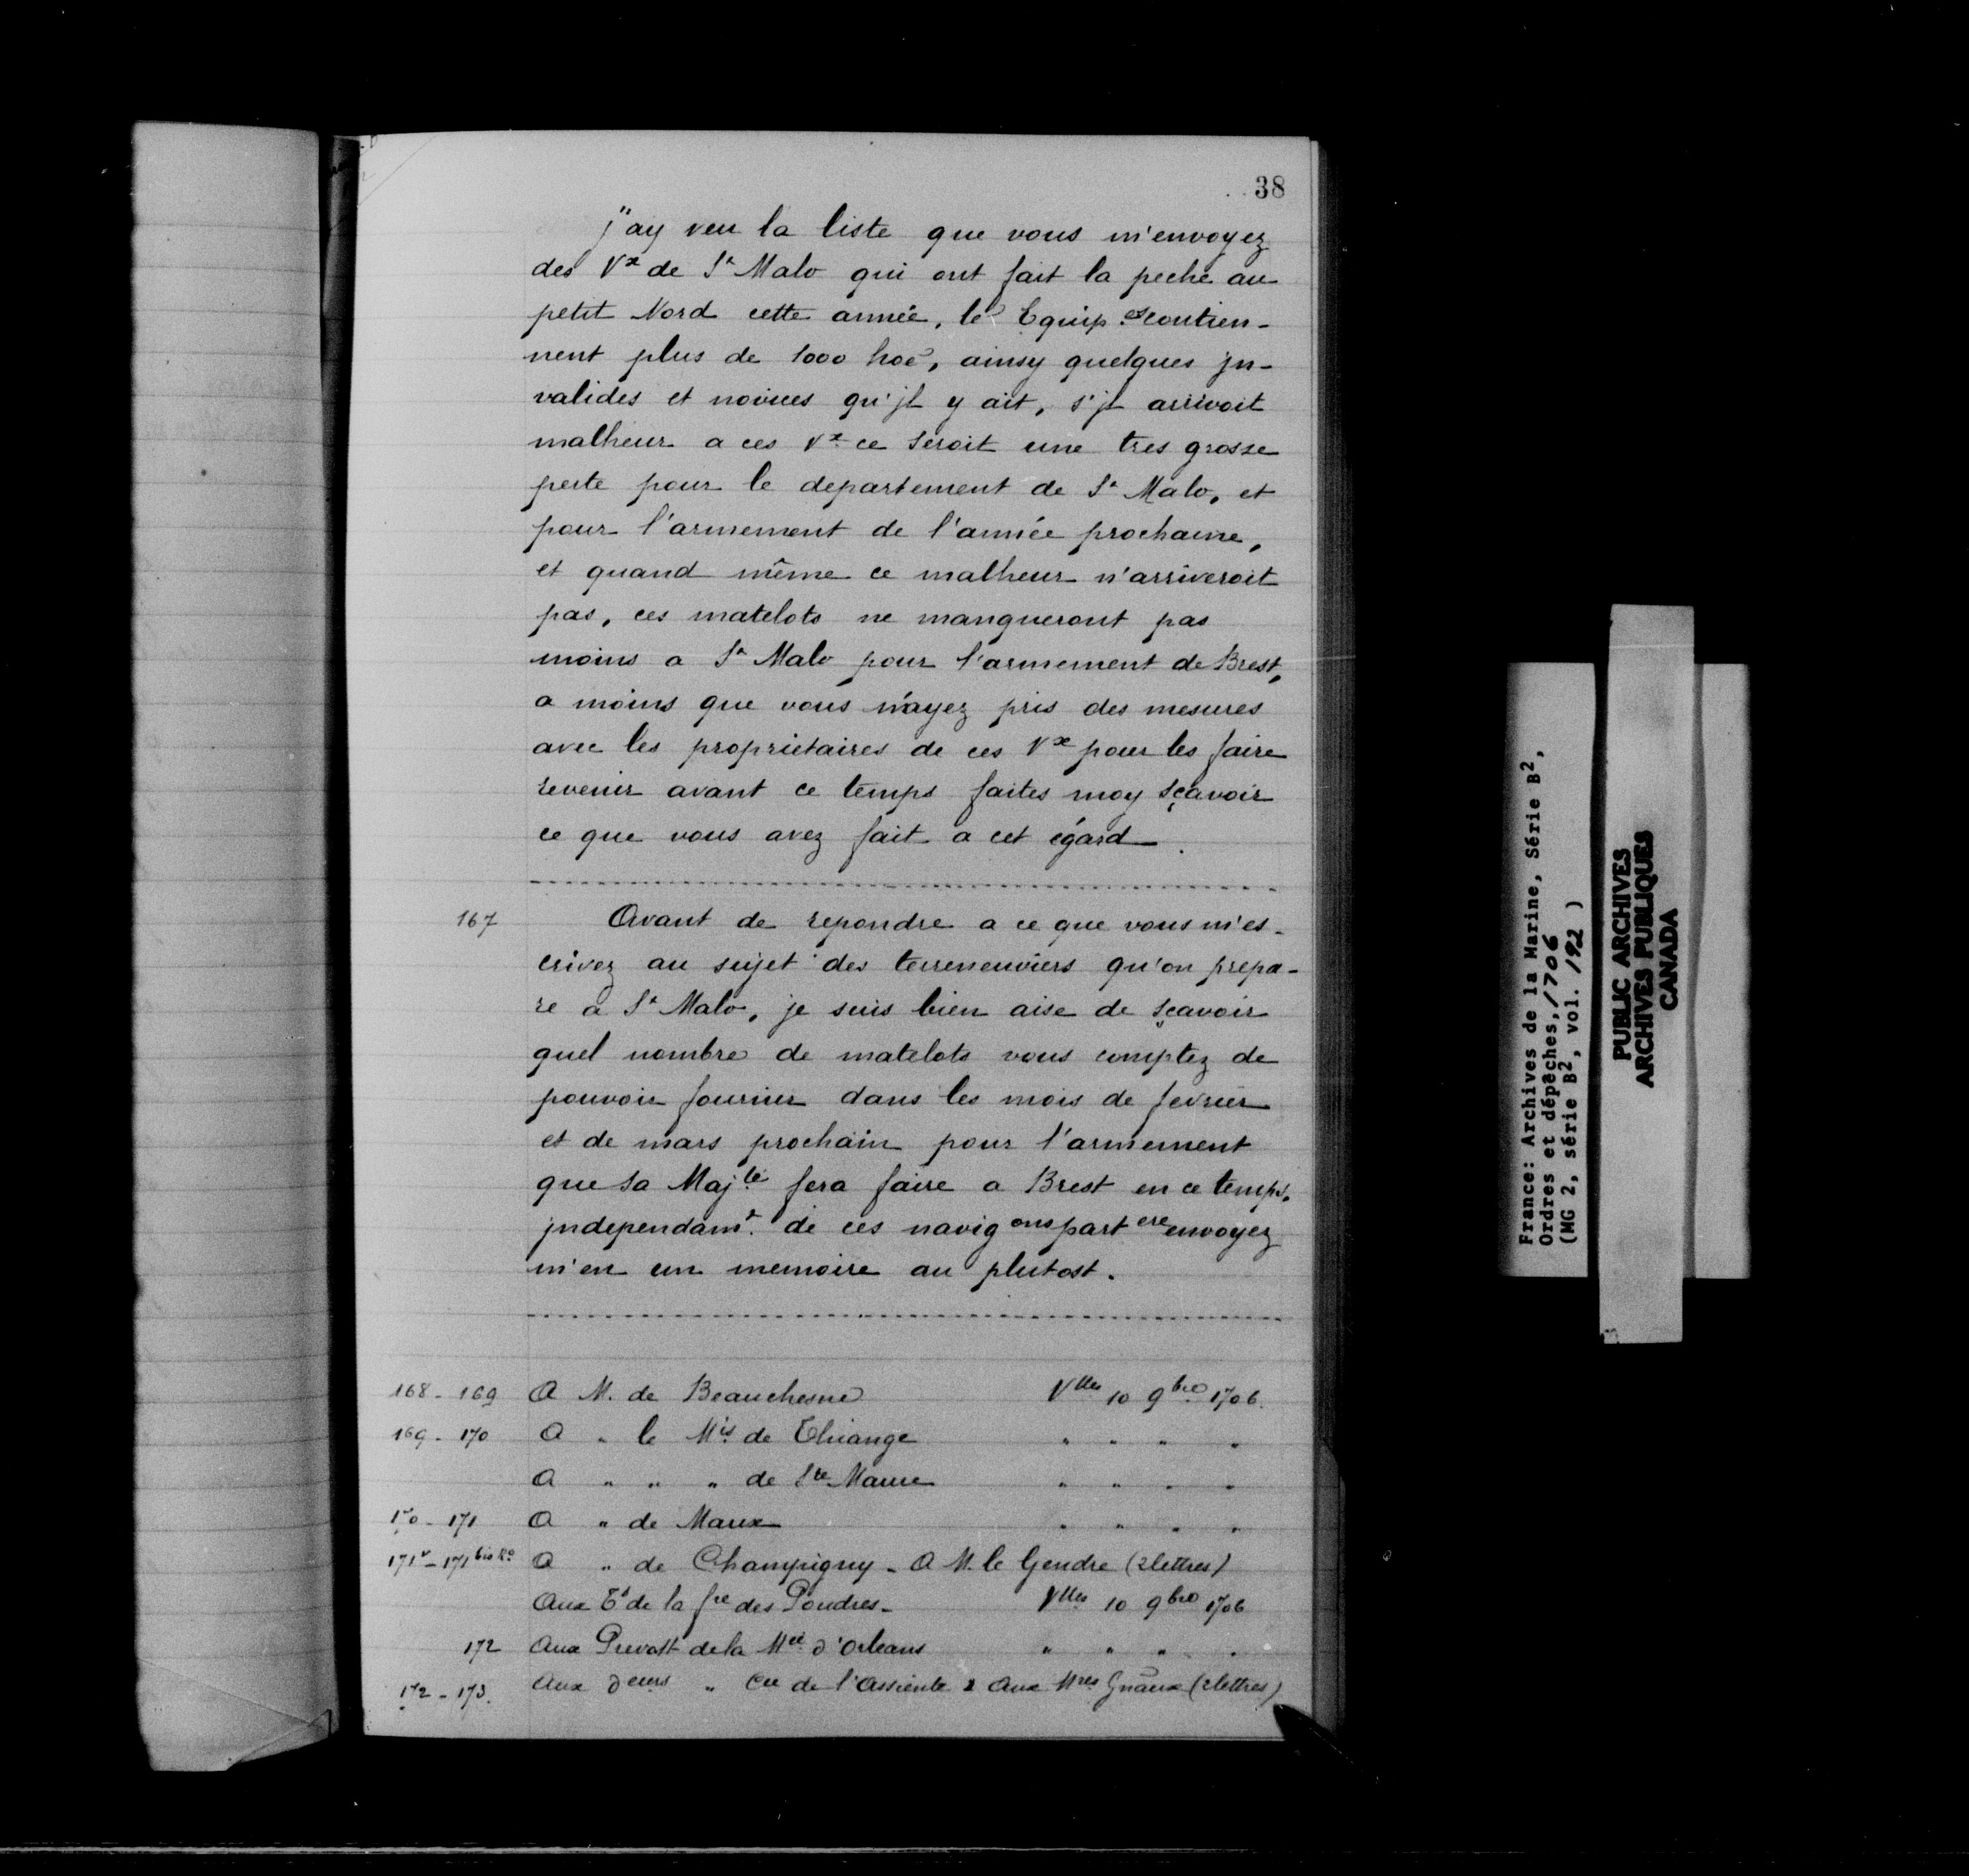 38
j"ay veu la liste que vous m'envoyez
des Vx de St Malo qui ont fait la peche au
petit Nord cette année, les Equip.es contien-
nent plus de 1000 hoēs, ainsy quelques jn-
valides et novices qu'jl y ait, s'jl arrivoit
malheur a ces Vx ce seroit une tres grosse
perte pour le departement de St Malo, et
pour l'armement de l'année prochaine,
et quand même ce malheur n'arriveroit
pas, ces matelots ne manqueront pas
moins a St Malo pour l'armement de Brest,
a moins que vous n'ayez pris des mesures
avec les propriétaires de ces Vx pour les faire
revenir avant ce temps faites moy sçavoir
ce que vous avez fait a cet égard.
167 Avant de repondre a ce que vous m'es-
crivez au sujet des terreneuviers qu'on prepa-
re a St Malo, je suis bien aise de sçavoir
quel nombre de matelots vous comptez de
pouvoir fournir dans les mois de fevrier
et de mars prochain pour l'armement
que sa Maj.té fera faire a Brest en ce temps,
jndependam.t de ces navigons partere envoyez
m'en un memoire au plutost.
168 - 169 A M. de Beauchesne Vlles 10 9bre 1706.
169 - 170 A " le Mis de Thiange " " " "
A " " " de Ste Maure " " " "
170 - 171 A " de Marux " " " "
171v - 171 bis Ro A " de Champigny - A M. le Gendre (2 lettres)
Aux Ts de la fre des Poudres - Vlles 10 9bre 1706
172 Aux Prevost de la Mée d'Orleans " " " "
172 - 173. Aux deurs " Cie de l'Assiente & Aux Mres Gnaux (2 lettres)
France: Archives de la Marine, Série B2,
Ordres et dépêches, 1706
(MG 2, série B2, vol. 192 )
PUBLIC ARCHIVES
ARCHIVES PUBLIQUES
CANADA